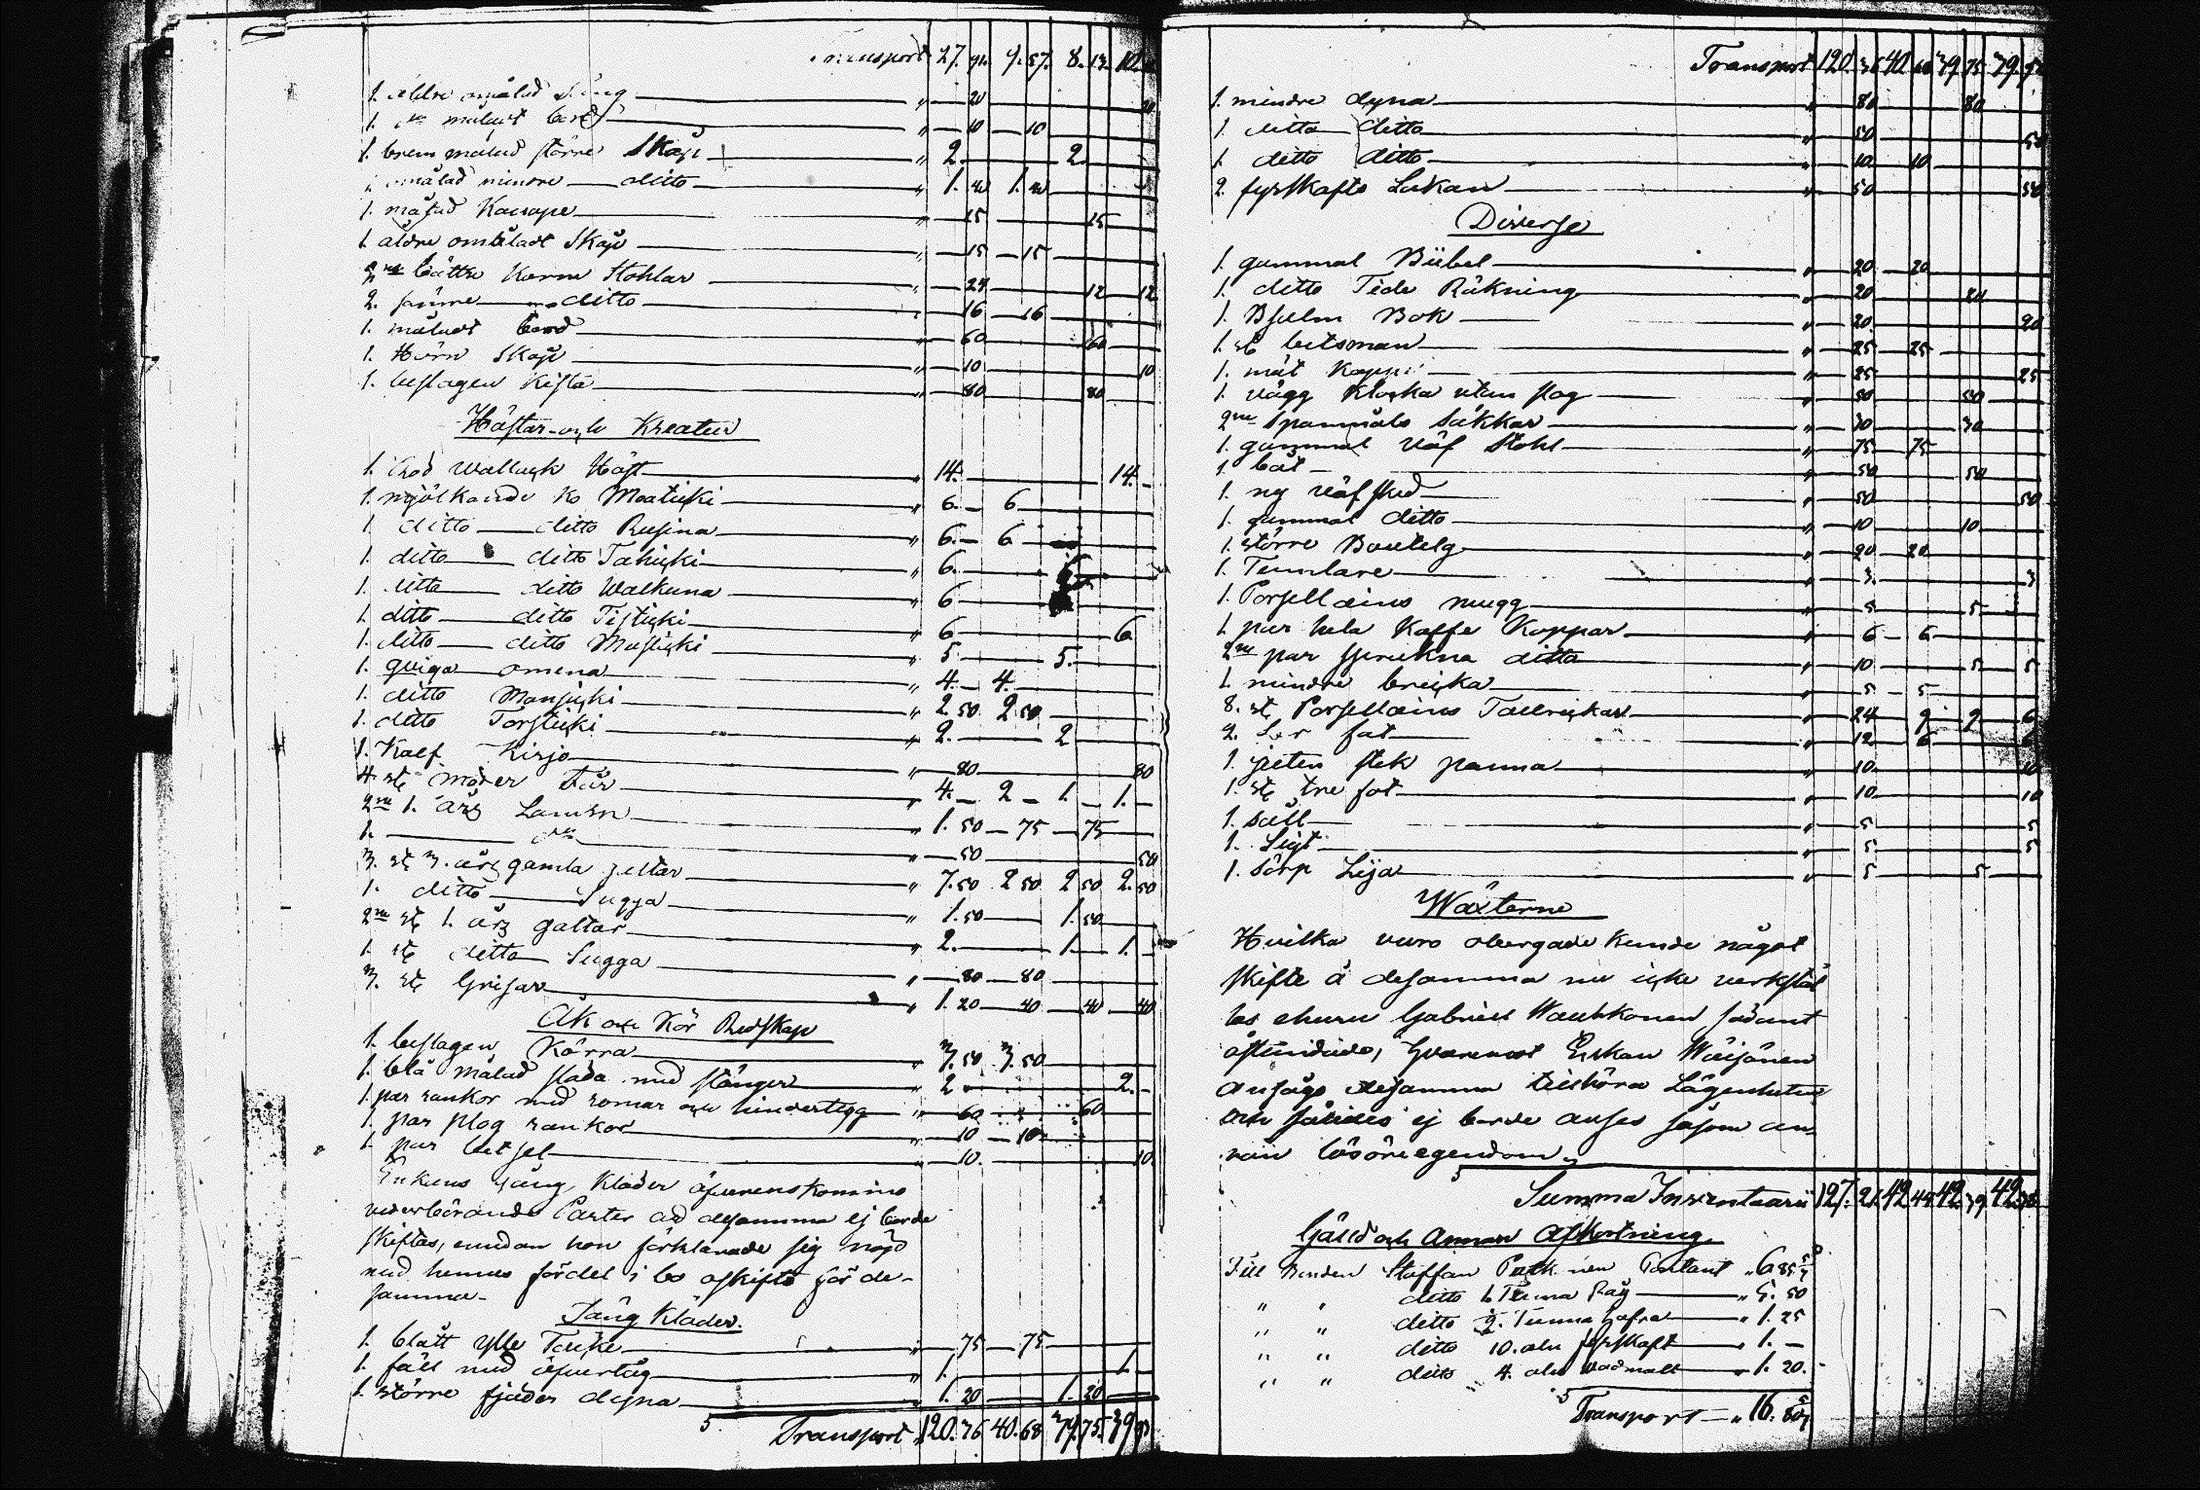 Transport 27. 91. 9. 57. 8. 13. 10.
1. äldre målad Säng " 20 20
1. dito måladt bord " 10 10
1. brun målad större Skåp " 2. 2
omålad mindre ditto " 1. 1.
1. målad Kanape " 15 15
1. äldre omåladt Skåp " 15 15
2ne bättre Karm Stohlar " 24 12 12
2. sämre ditto " 16 16
1. måladt bord " 60 60
1. Hörn Skåp " 10 10
1. beslagen Kista " 80 80
Hästar och Kreatur
1. brod Wallack Häst " 14. 14.
1. mjölkande ko Maaticki " 6 6
1. ditto ditto Rusina " 6. 6
1. ditto ditto Tähicki " 6.
1. ditto ditto Walkuna " 6
1. ditto ditto Tisticki " 6 6
1. ditto ditto Musticki " 5 5.
1. qviga omena " 4. 4.
1. ditto Mansicki " 2 50 2 50
1. ditto Torsticki " 2. 2
1. Kalf Kirjo " 80 80
4. st. moder Får " 4. 2 1. 1.
2ne 1. årg Lamm " 1. 50 75 75
1. dito " 50 50
3. st. 3. årg gamla galtar " 7.50 2 50 2 50 2. 50
1. ditto Sugga " 1. 50 1. 50
2ne st 1. årg galtar " 2. 1 1.
1. st ditto Sugga " 80 80
3. st Grisar " 1. 20 40 40 40
Åk och Kör Redskap
1. beslagen Kärra " 3. 50 3. 50
1. blå målad släda med stänger " 2 2.
1. par rankor med romar och hindertygg " 60 60
1. par plog rankor " 10 10
1. par betsel " 10. 10
Enkans gång kläder öfverenskommo
vederbörande Parter att desamma ej borde
skiftas, emedan hon förklarade sig nöjd
med hennes fördel i bo oskifto för de-
samma.
Säng Kläder.
1. blått ylle Täcke " 75 75
1. fäll med öfvertåg " 1. 1
1. större fjäder dyna " 1. 20 1. 20
Transport " 120. 36 40. 68 39. 75. 39
Transport 120. 36 40. 68 39 75 39.
1. mindre dyna " 80 80
1. ditto ditto " 50 50
1. ditto ditto " 10 10
2. fyrskafts Lakan " 50 50
Diverse
1. gammal Bibel " 20 20
1. ditto Tide Räkning " 20 20
1. Psalm Bok " 20 20
1. st. betsman " 25 25
1. måt Kappe " 25 25
1. vägg Klocka utan slag " 50 50
2ne Spanmåls säkkar " 30 30
1. gammal väf Stohl " 75 75
1. båt " 50 50
1. ny väfsked " 50 50
1. gammal ditto " 10 10
1. större Boutelg " 20 20
1. Tumlare " 3. 3
1. Porsellains mugg " 5 5
1. par hela Kaffe Koppar " 6 6
2ne par spruckna ditto " 10 5 5
1. mindre bricka " 5 5
8. st Porsellains Tallrickar " 24 9 9 6
2. Ler fat " 12 6 6
1. juten stek panna " 10 10
1. st tre fot " 10 10
1. såll " 5 5
1. Sigt " 5 5
1. sörp Lija " 5 5
Wäxterne
Hvilka voro obergade kunde något
skifte å desamma nu icke verkstäl
las ehuru Gabriel Wauhkonen sådant
åstundade, hvaremot Enkan Wäisänen
ansågs desamma tillhöra Lägenheten
och således ej borde anses såsom an-
nan lösöreegendom.
Summa Inventarii 127. 21 42 44 42. 39 42
Gäld och Annan Afkortning
Till Bonden Staffan kontant " 6 85 5/7
" " ditto 1. Tunna Råg " 5. 50
" " ditto ½. Tunna hafra " 1. 25
" " ditto 10. aln fyrskaft " 1. —
" " ditto 4. aln wadmalt " 1. 20.
Transport " 16. 80 5/7